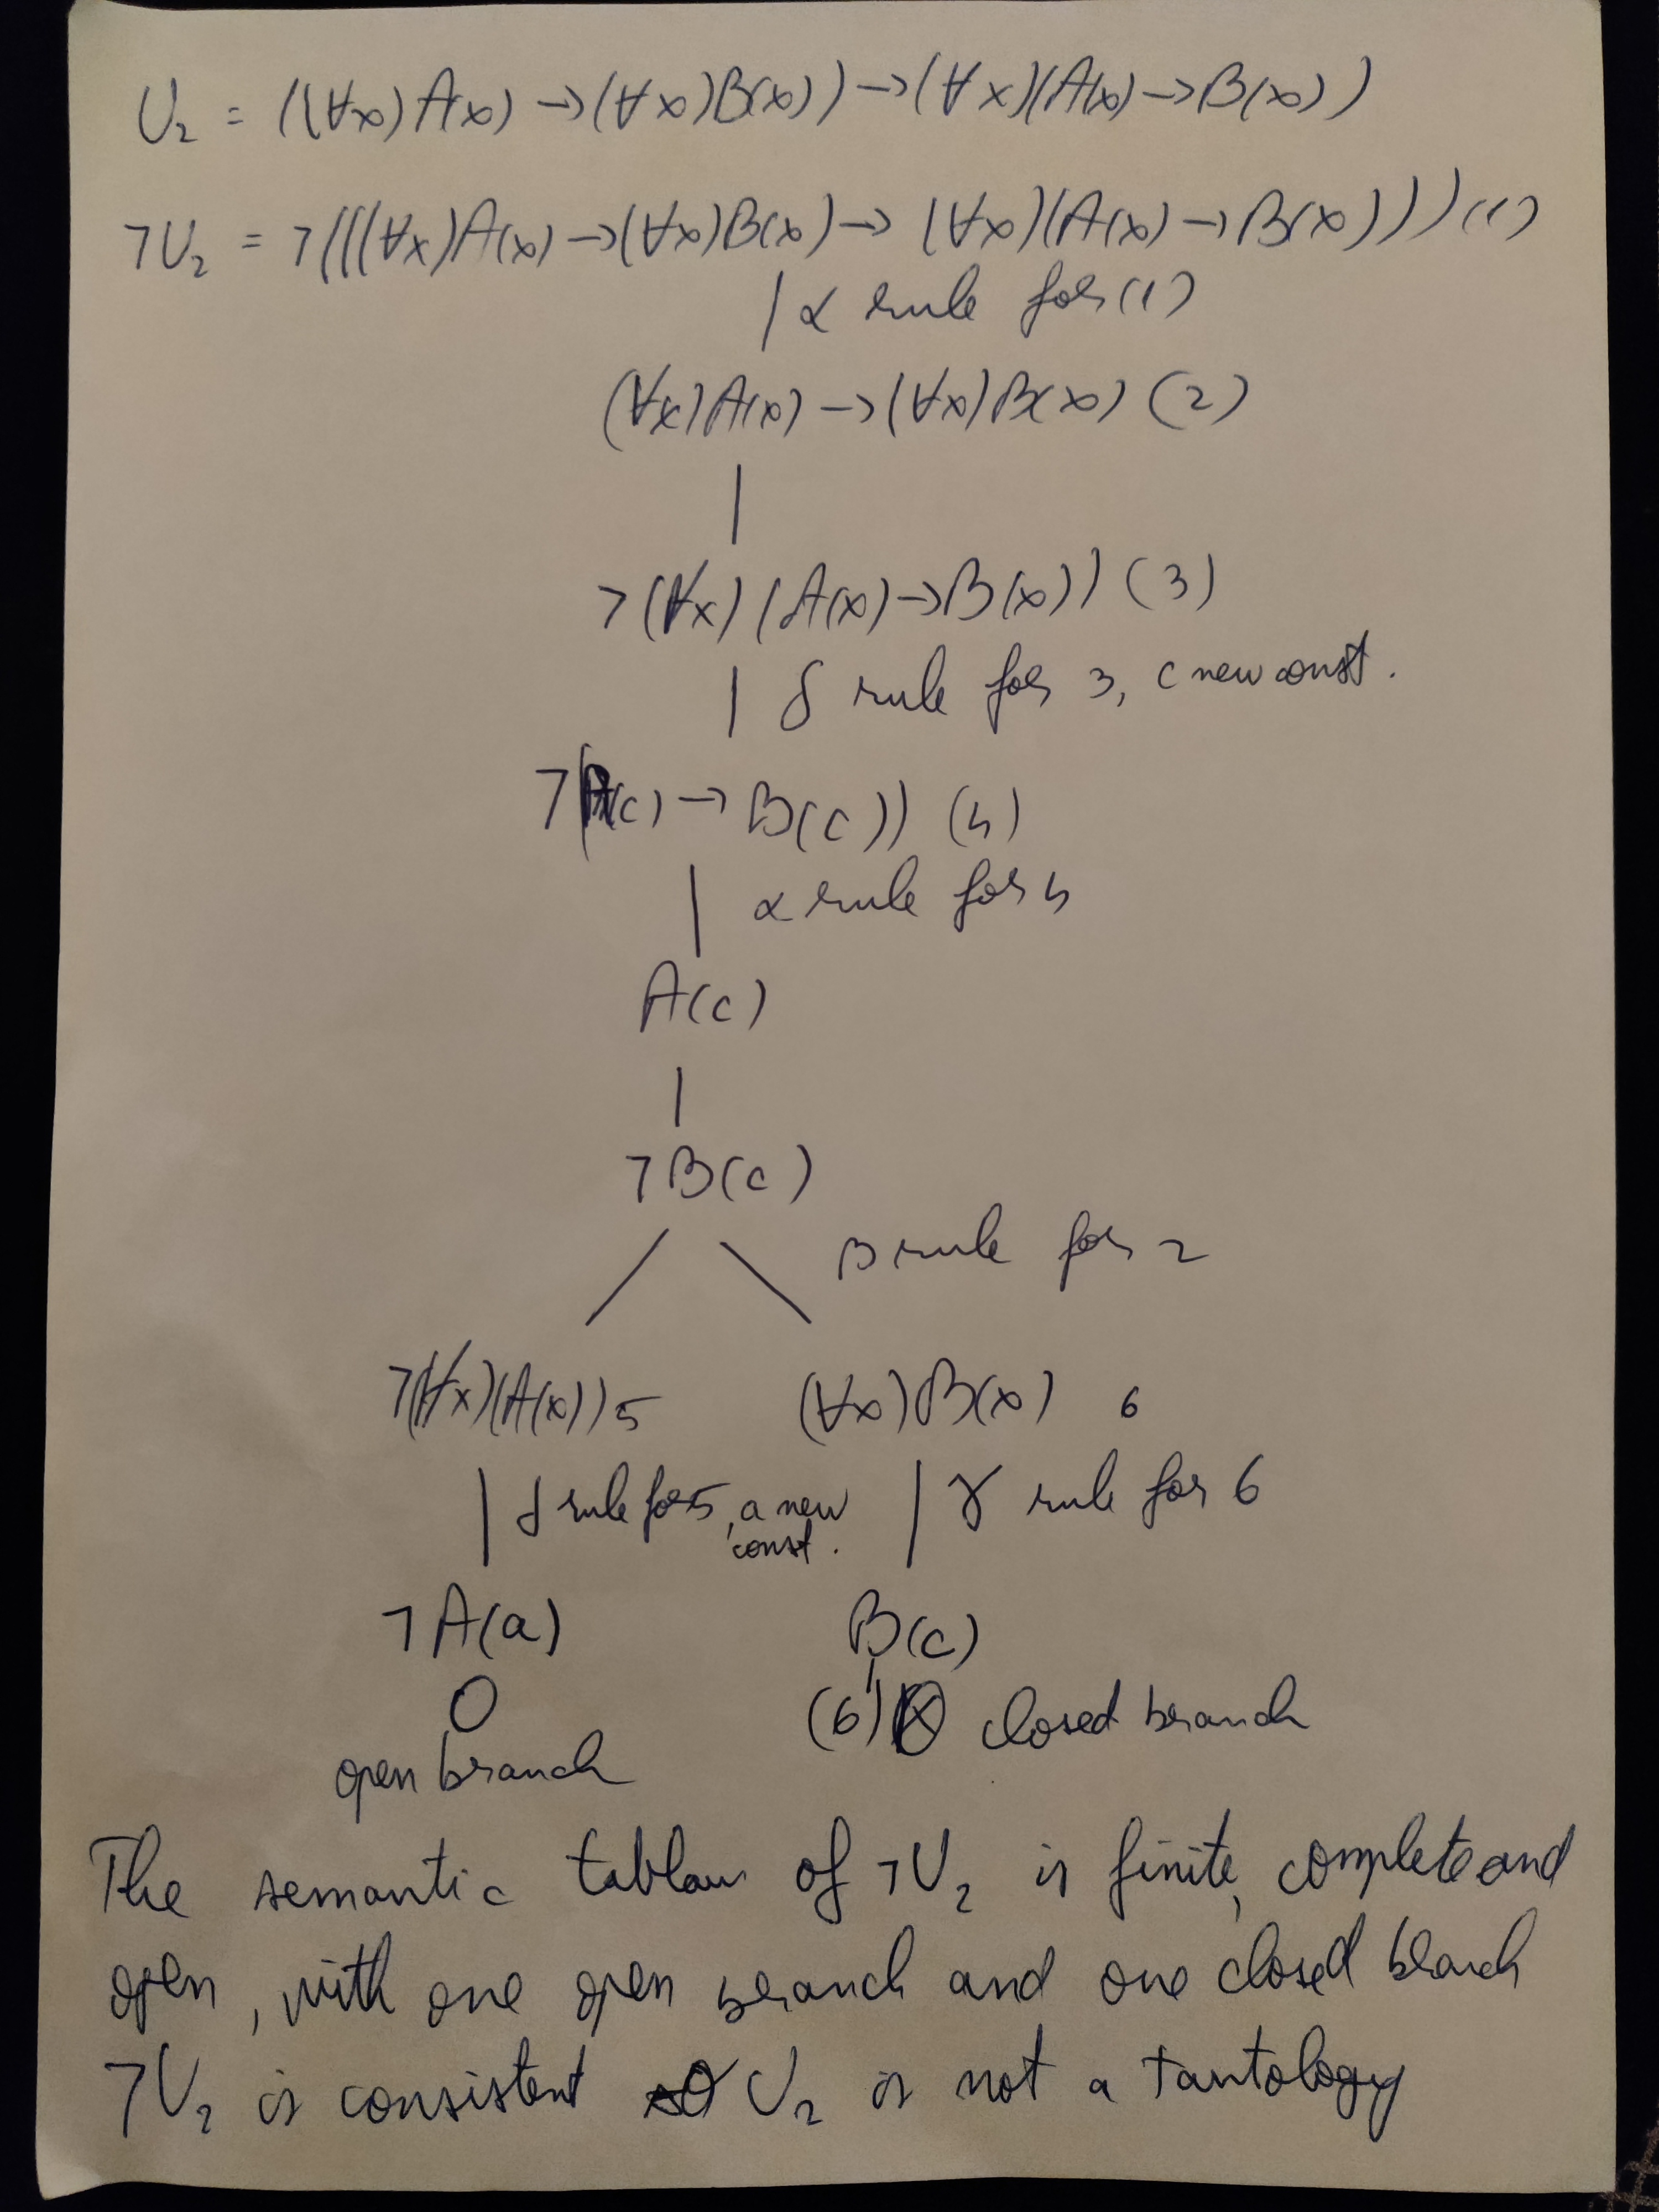 U₂ = ((∀x)A(x) → (∀x)B(x)) → (∀x)(A(x) → B(x))
¬U₂ = ¬(((∀x)A(x) → (∀x)B(x) → (∀x)(A(x) → B(x)))) (1)
| α rule for (1)
(∀x)A(x) → (∀x)B(x) (2)
|
¬(∀x)(A(x) → B(x)) (3)
| δ rule for 3, c new const.
¬(A(c) → B(c)) (4)
| α rule for 4
A(c)
|
¬B(c)
/ \ β rule for 2
¬(∀x)(A(x)) 5 (∀x)B(x) 6
| δ rule for 5, a new const. | γ rule for 6
¬A(a) B(c)
O (6) ⊗ closed branch
open branch
The semantic tablau of ¬U₂ is finite, complete and
open, with one open branch and one closed branch
¬U₂ is consistent so U₂ is not a tautology